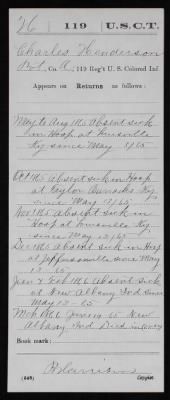 26 119 U.S.C.T.
Charles Henderson
Pvt, Co. A, 119 Reg't U. S. Colored Inf
Appears on Returns as follows:
May to Aug 1865 Absent sick
in Hosp at Louisville
Ky since May /65
Oct 1865 Absent sick in Hosp
at Taylor Barracks Ky
since May 12/65
Nov 1865 absent sick in
Hosp at Louisville Ky
since May 12/65
Dec 1865 Absent sick in Hosp
at Jeffersonville since May
65
Jan & Feb 1866 Absent sick
at New Albany Ind since
May 12-65
Mch 1866 65 New
Albany Ind Died
Book mark:
Copyist.